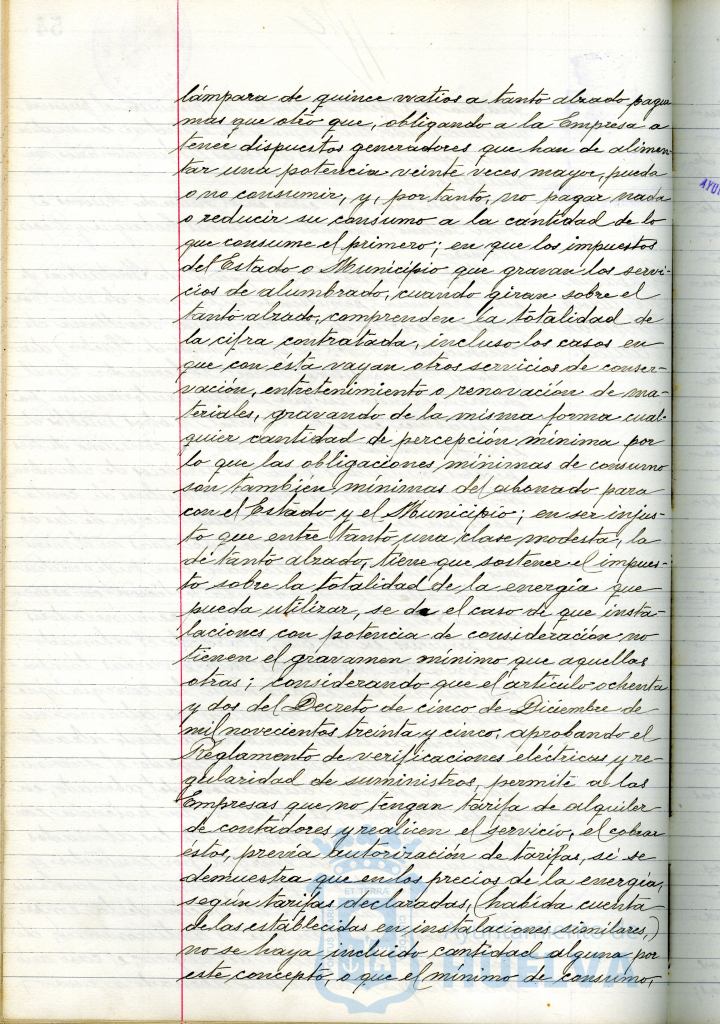 lámpara de quince watios a tanto alzado pague
mas que otro que, obligando a la Empresa a
tener dispuestos generadores que han de alimen-
tar una potencia veinte veces mayor, pueda
o no consumir, y, por tanto, no pagar nada
o reducir su consumo a la cantidad de lo
que consume el primero; en que los impuestos
del Estado o Municipio que gravan los servi-
cios de alumbrado, cuando giran sobre el
tanto alzado, comprenden la totalidad de
la cifra contratada, incluso los casos en
que con ésta vayan otros servicios de conser-
vación, entretenimiento o renovación de ma-
teriales, gravando de la misma forma cual-
quier cantidad de percepción mínima por
lo que las obligaciones mínimas de consumo
son también mínimas del abonado para
con el Estado y el Municipio; en ser injus-
to que entre tanto una clase modesta, la
de tanto alzado, tiene que sostener el impues-
to sobre la totalidad de la energía que
pueda utilizar, se da el caso de que insta-
laciones con potencia de consideración no
tienen el gravamen mínimo que aquellas
otras; considerando que el artículo ochenta
y dos del Decreto de cinco de Diciembre de
mil novecientos treinta y cinco, aprobando el
Reglamento de verificaciones eléctricas y re-
gularidad de suministros, permite a las
Empresas que no tengan tarifa de alquiler
de contadores y realicen el servicio, el cobrar
estos, previa autorización de tarifas, si se
demuestra que en los precios de la energía,
según tarifas declaradas, (habida cuenta
de las establecidas en instalaciones similares,)
no se haya incluido cantidad alguna por
este concepto, o que el mínimo de consumo,
Ayuntamiento de
HUELVA